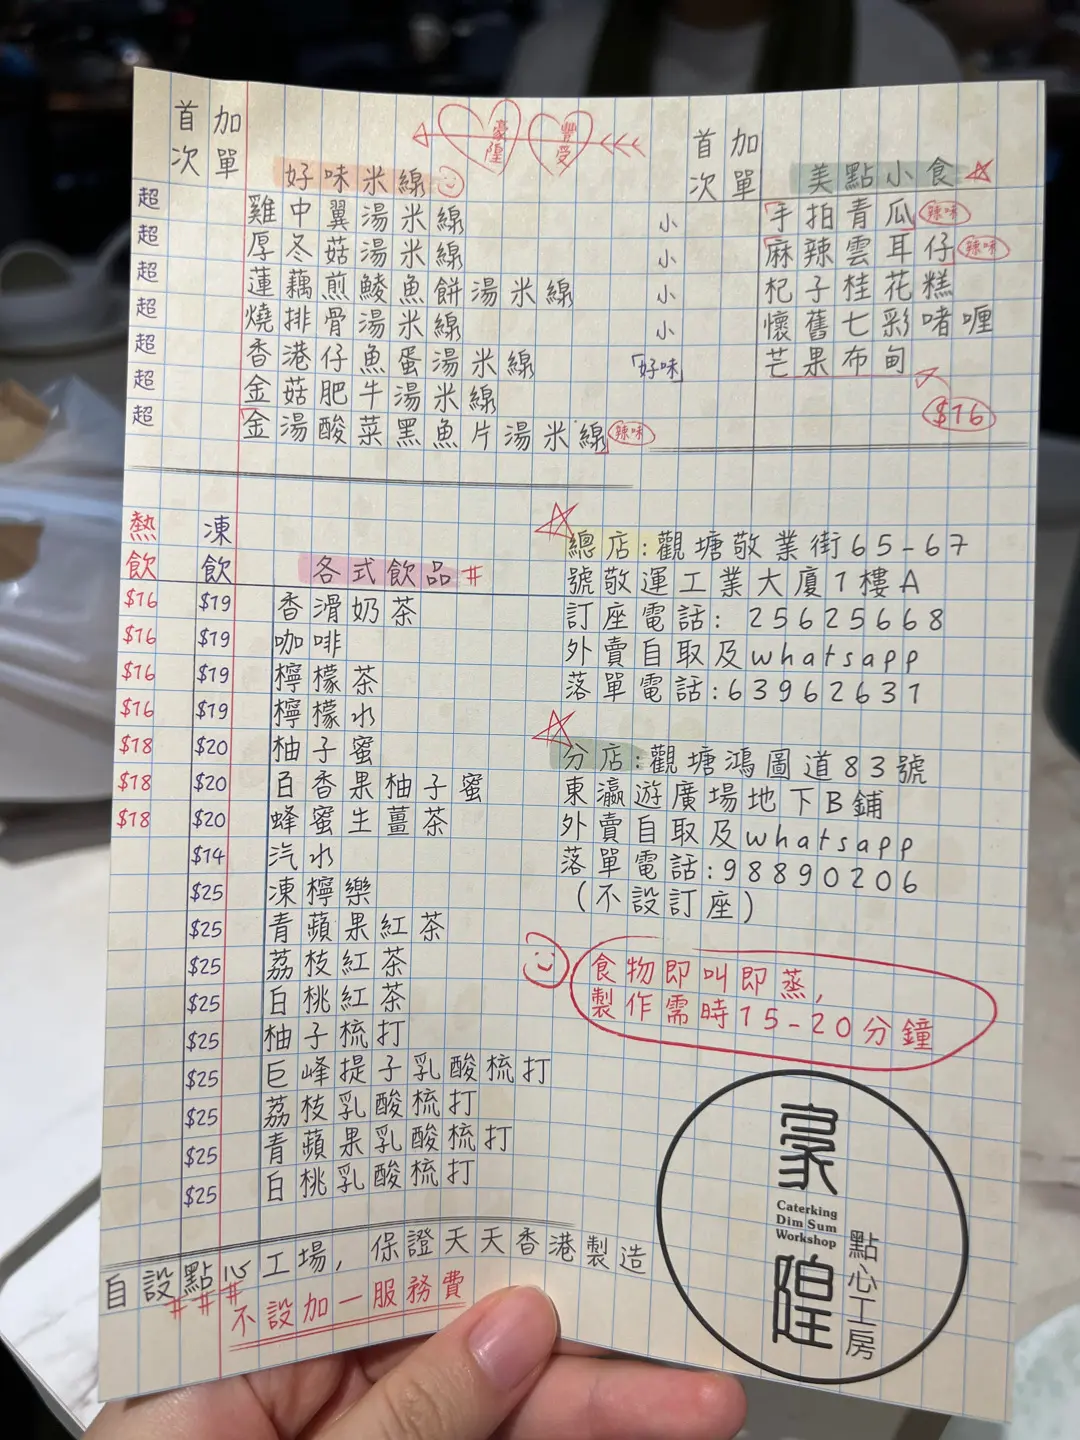 首次 加單
豪隍 豐受
好味米線
超 雞中翼湯米線
超 厚冬菇湯米線
超 蓮藕煎鯪魚餅湯米線
超 燒排骨湯米線
超 香港仔魚蛋湯米線
超 金菇肥牛湯米線
超 金湯酸菜黑魚片湯米線 辣味
首次 加單
美點小食
小 手拍青瓜 辣味
小 麻辣雲耳仔 辣味
小 杞子桂花糕
小 懷舊七彩啫喱
「好味」 芒果布甸
$16
熱飲 凍飲 各式飲品#
$16 $19 香滑奶茶
$16 $19 咖啡
$16 $19 檸檬茶
$16 $19 檸檬水
$18 $20 柚子蜜
$18 $20 百香果柚子蜜
$18 $20 蜂蜜生薑茶
$14 汽水
$25 凍檸樂
$25 青蘋果紅茶
$25 荔枝紅茶
$25 白桃紅茶
$25 柚子梳打
$25 巨峰提子乳酸梳打
$25 荔枝乳酸梳打
$25 青蘋果乳酸梳打
$25 白桃乳酸梳打
總店:觀塘敬業街65-67
號敬運工業大廈1樓A
訂座電話: 25625668
外賣自取及whatsapp
落單電話:63962631
分店:觀塘鴻圖道83號
東瀛遊廣場地下B鋪
外賣自取及whatsapp
落單電話:98890206
(不設訂座)
食物即叫即蒸,
製作需時15-20分鐘
自設點心工場, 保證天天香港製造
###
不設加一服務費
豪隍
Caterking
Dim Sum
Workshop
點心工房